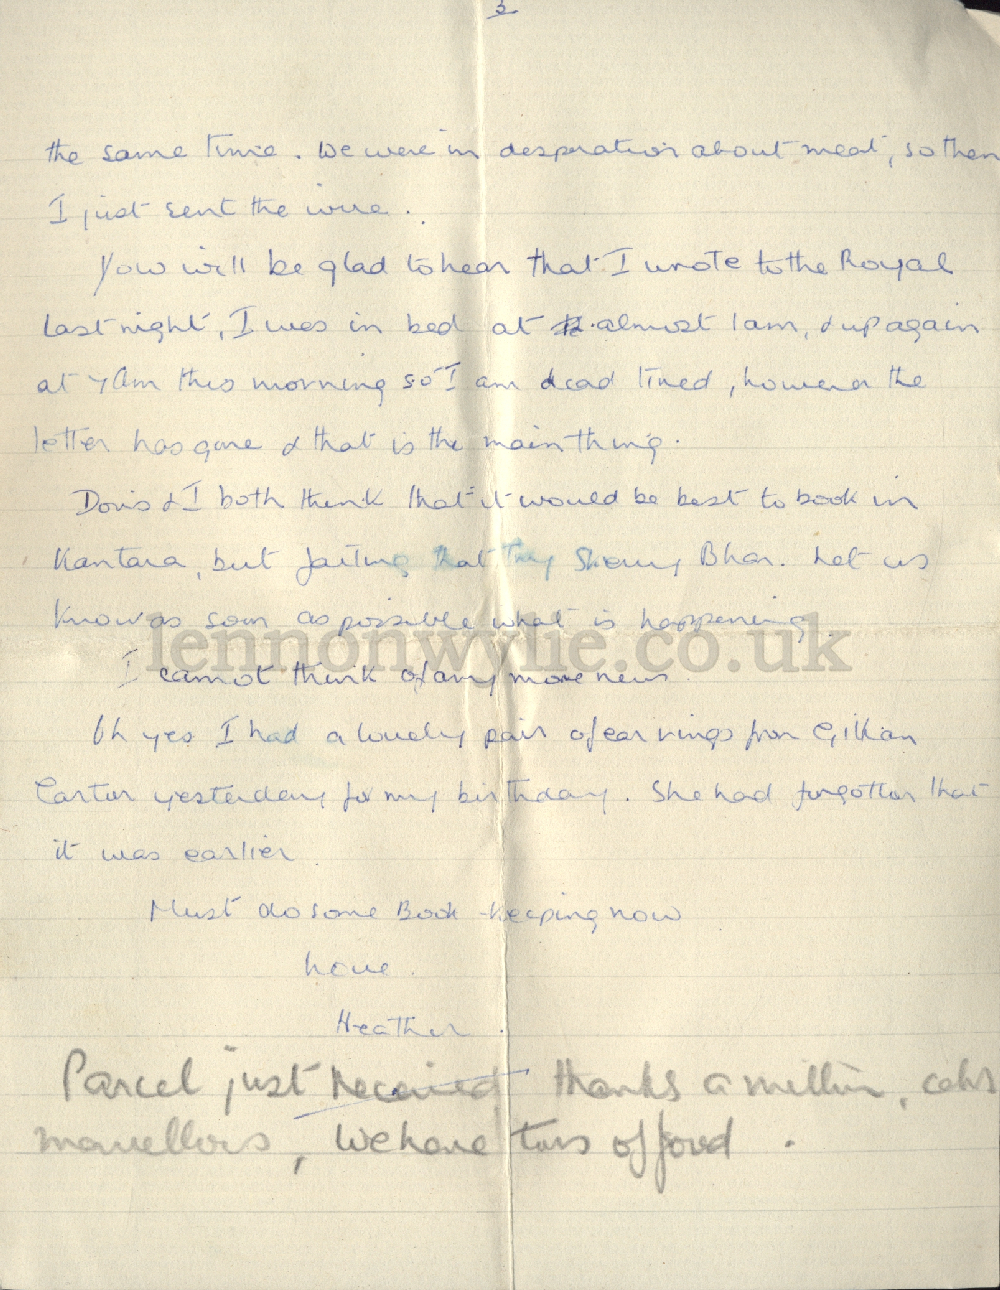 3
the same time. We were in desperation about meat, so then
I just sent the wire.
You will be glad to hear that I wrote to the Royal
last night, I was in bed at almost 1am, & up again
at 7am this morning so I am dead tired, however the
letter has gone & that is the main thing.
Doris & I both think that it would be best to book in
Kantara, but failing that try Bhan. Let us
know as soon as possible what is happening
lennonwylie.co.uk
I cannot think of any more news.
Oh yes I had a lovely pair of earrings from Gillian
Carter yesterday for my birthday. She had forgotten that
it was earlier
Must do some Book-keeping now
Love
Heather.
Parcel just received thanks a million,
marvellous, We have tins of food.